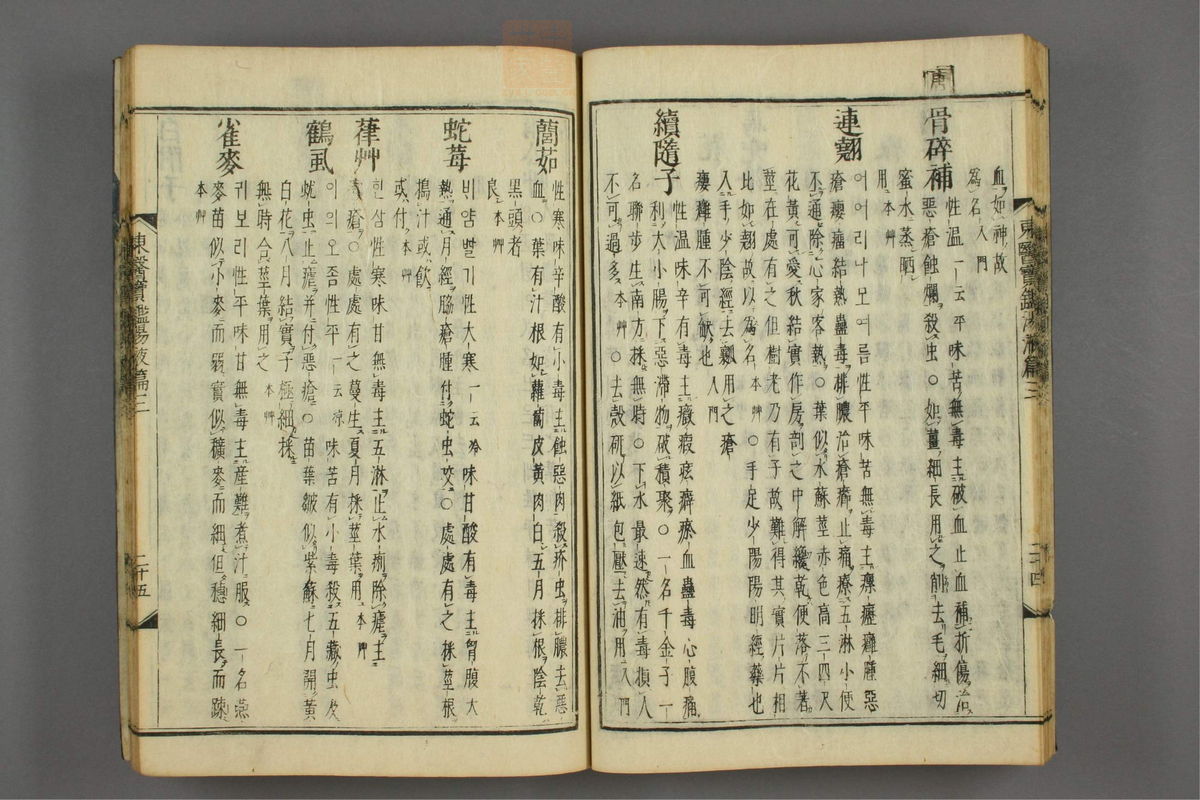 血如神故
爲名入門
唐
骨碎補性温一云平味苦無毒主破血止血補折傷治
惡瘡蝕爛殺虫○如薑細長用之削去毛細切
蜜水蒸晒
用本艸
連翹어어리나모여름性平味苦無毒主瘰癧癰腫惡
瘡癭瘤結熱蠱毒排膿治瘡癤止痛療五淋小便
不通除心家客熱○葉似水蘇莖赤色高三四尺
花黃可愛秋結實作房剖之中解纔乾便落不著
莖在處有之但樹老乃有子故難得其實片片相
比如翹故以爲名本艸○手足少陽陽明經藥也
入手少陰經去瓤用之瘡
瘻癰腫不可缺也入門
續隨子性温味辛有毒主癥瘕痃癖瘀血蠱毒心腹痛
利大小腸下惡滯物破積聚○一名千金子一
名聯步生南方採無時○下水最速然有毒損人
不可過多本艸○去殼研以紙包壓去油用入門
東醫寶鑑湯液篇三
二十四
䕡茹性寒味辛酸有小毒主蝕惡肉殺疥虫排膿去惡
血○葉有汁根如蘿蔔皮黃肉白五月採根陰乾
黑頭者
良本艸
蛇莓비얌빨기性大寒一云冷味甘酸有毒主胷腹大
熱通月經脇瘡腫付蛇虫咬○處處有之採莖根
搗汁或飲
或付本艸
葎艸한삼性寒味甘無毒主五淋止水痢除瘧主
瘡○處處有之蔓生夏月採莖葉用本艸
鶴虱이의오좀性平一云凉味苦有小毒殺五藏虫及
蚘虫止瘧并付惡瘡○苗葉皺似紫蘇七月開黃
白花八月結實子極細採
無時合莖葉用之本艸
雀麥귀보리性平味甘無毒主産難煮汁服○一名燕
麥苗似小麥而弱實似穬麥而細但穗細長而踈
本艸
東醫寶鑑湯液篇三
二十五